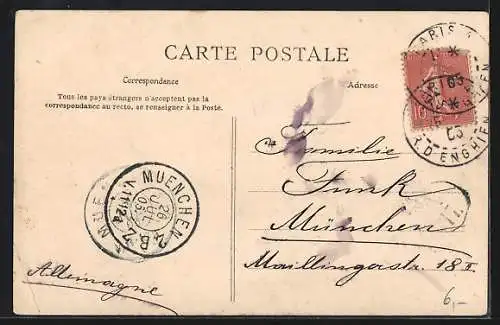 CARTE POSTALE
Correspondance
Adresse
Tous les pays étrangers n'acceptent pas la
correspondance au recto, se renseigner à la Poste.
PARIS
R. D'ENGHIEN
10
Familie
Funk
München
Maillingerstr. 18 II.
Allemagne
MUENCHEN 2. B. Z.
26
JUL
05
6,-